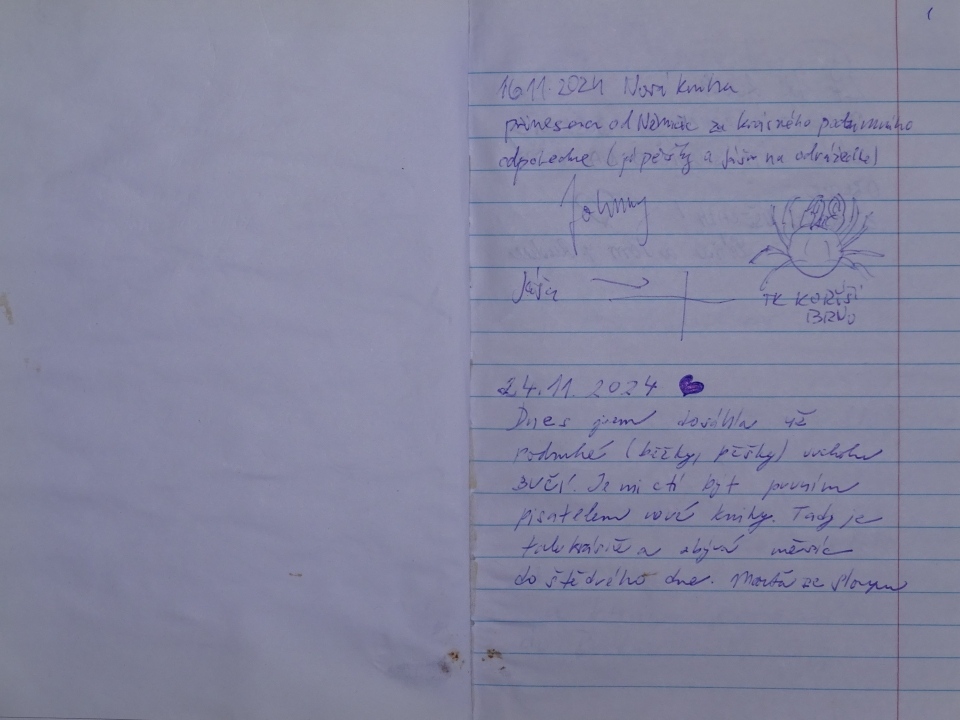 16.11.2024 Nová kniha
přinesena od Němcic za krásného podzimního
odpoledne (já pěšky a Jáša na odrážedle)
Johnny
Jáša
TK KOŘÍŠI
BRNO
24.11.2024
Dnes jsem dosáhla už
podruhé (běžky, pěšky) vrcholu
Je mi ctí být prvním
pisatelem nové knihy. Tady je
a zbývá měsíc
do štědrého dne. ze Sloupu